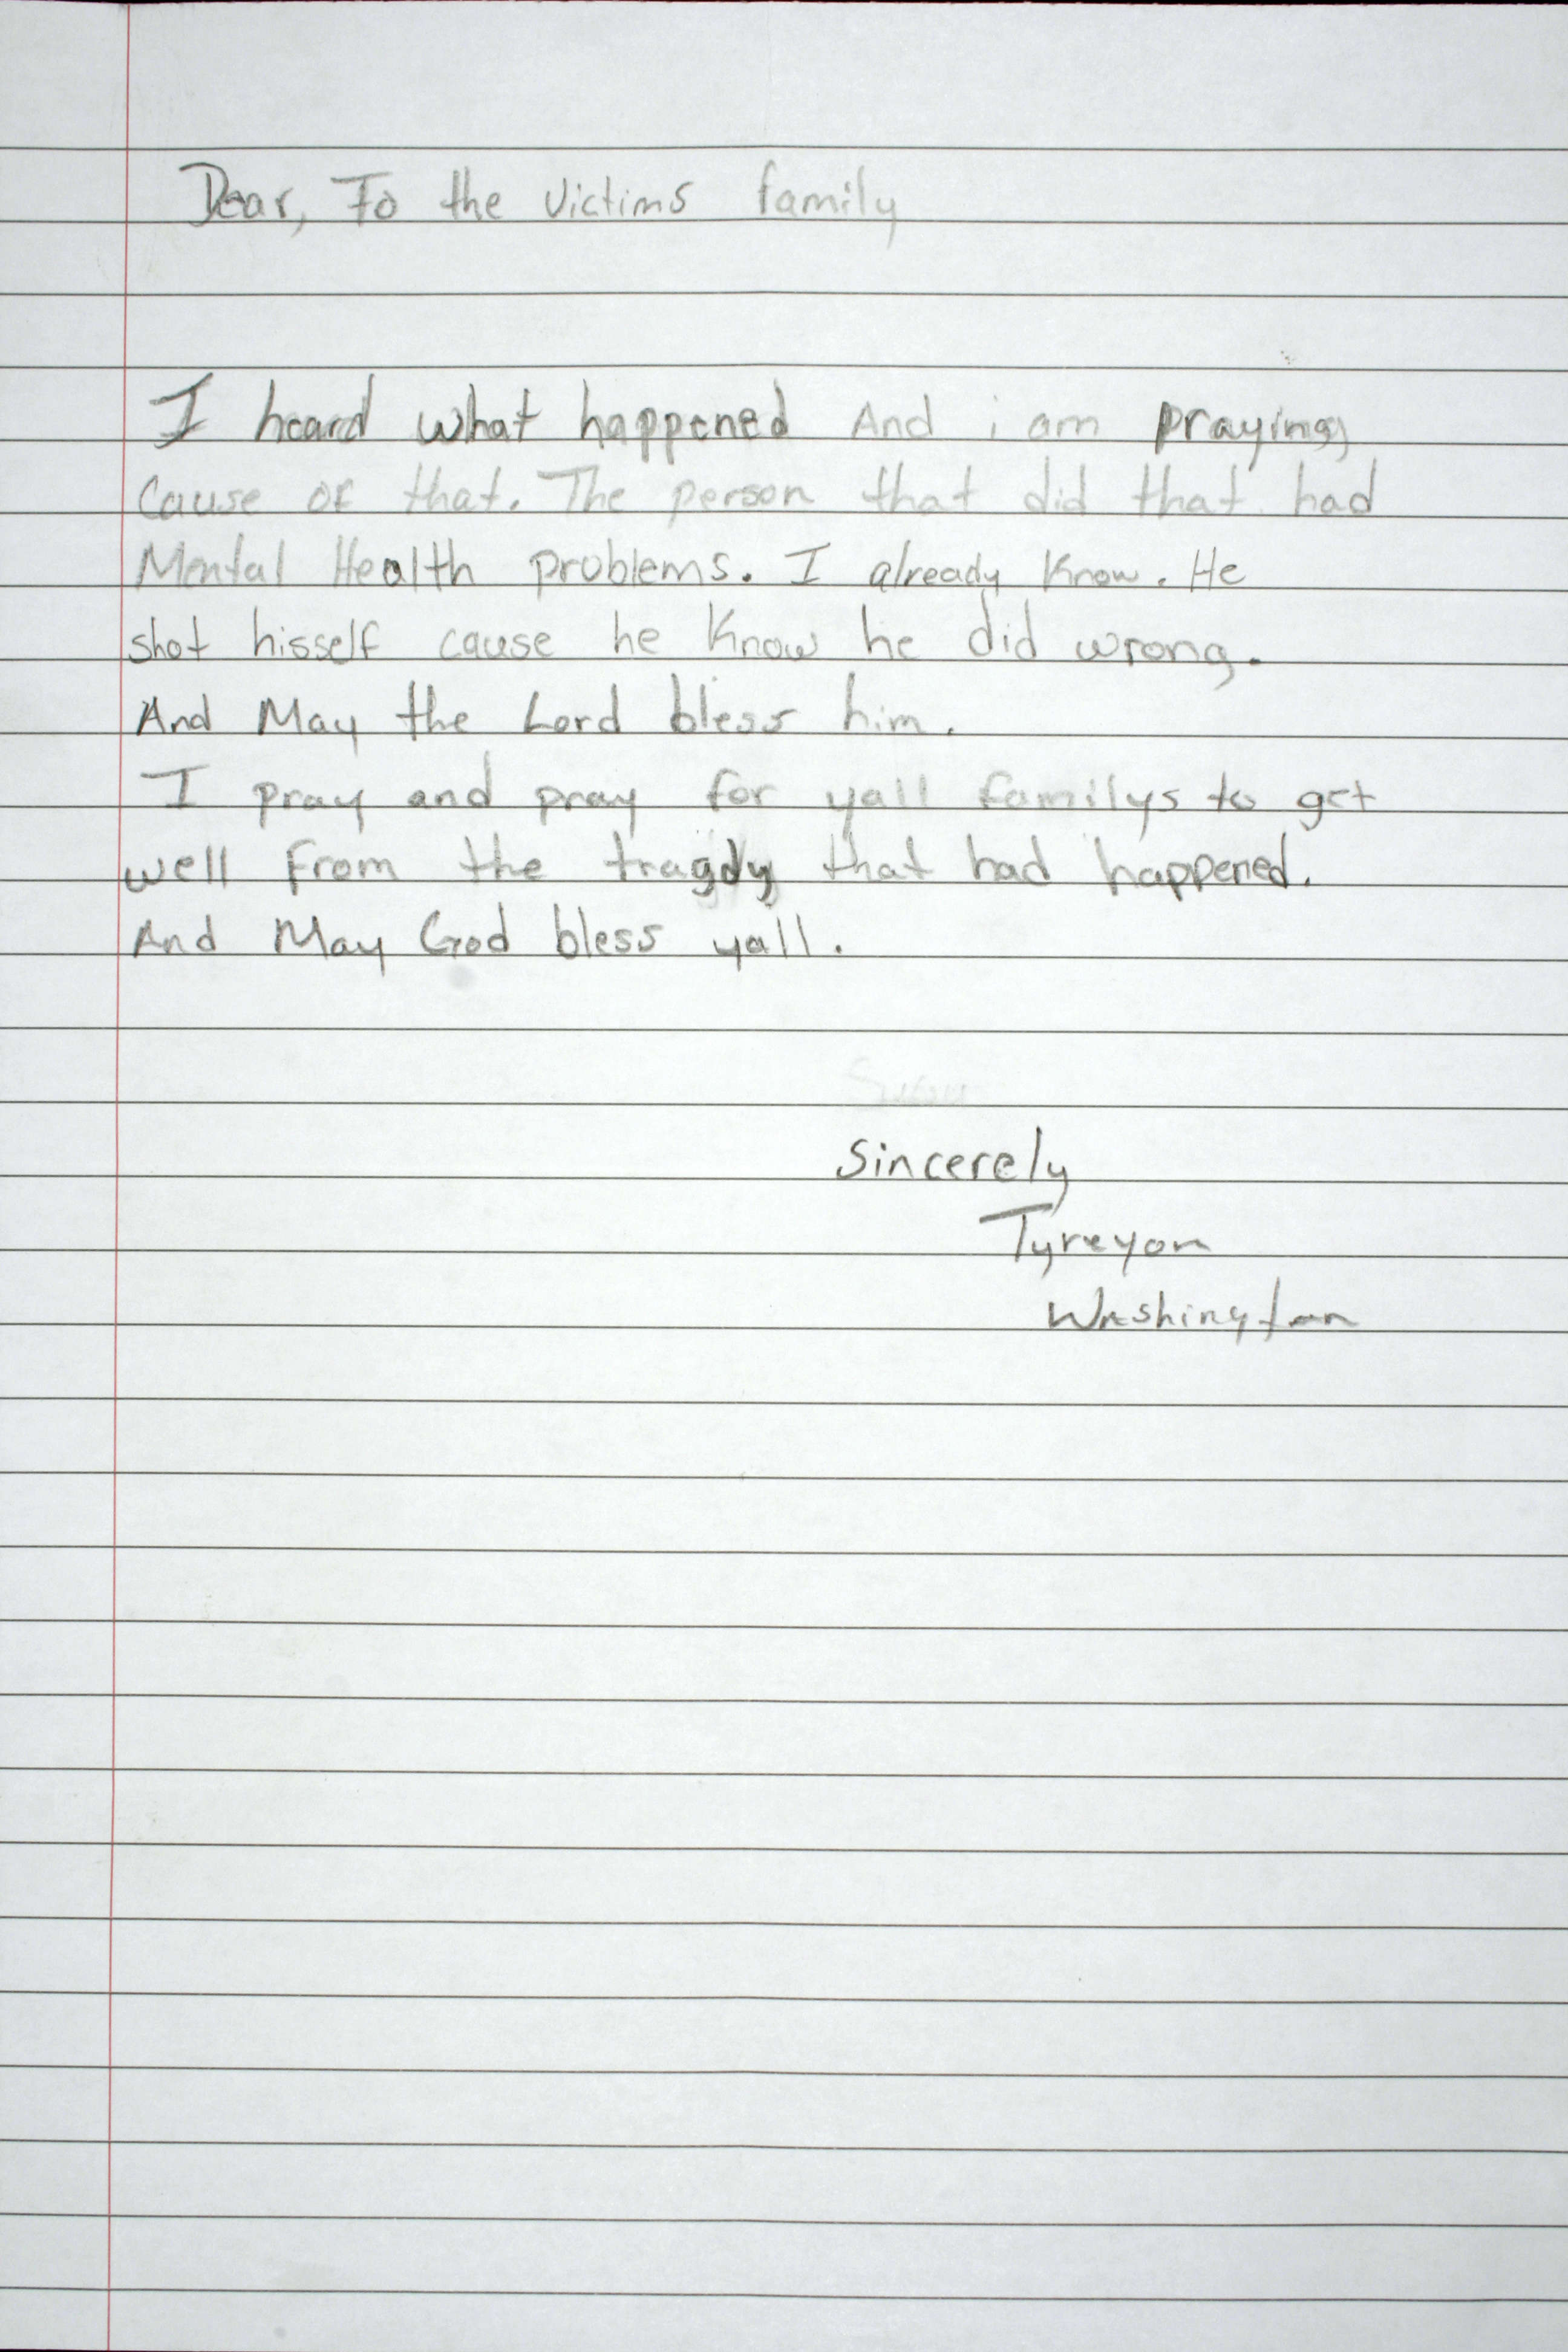 Dear, To the victims family
I heard what happened And i am praying
Cause of that. The person that did that had
Mental Health problems. I already Know. He
shot hisself cause he Know he did wrong.
And May the Lord bless him.
I pray and pray for yall familys to get
well from the tragdy that had happened.
And May God bless yall.
Sincerely
Tyreyon
Washington